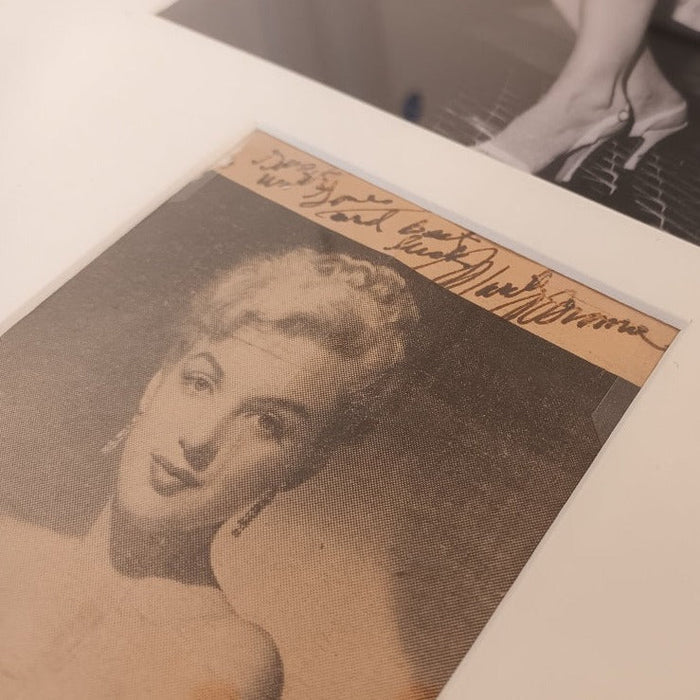 Doris
with love
and best
luck Marilyn Monroe